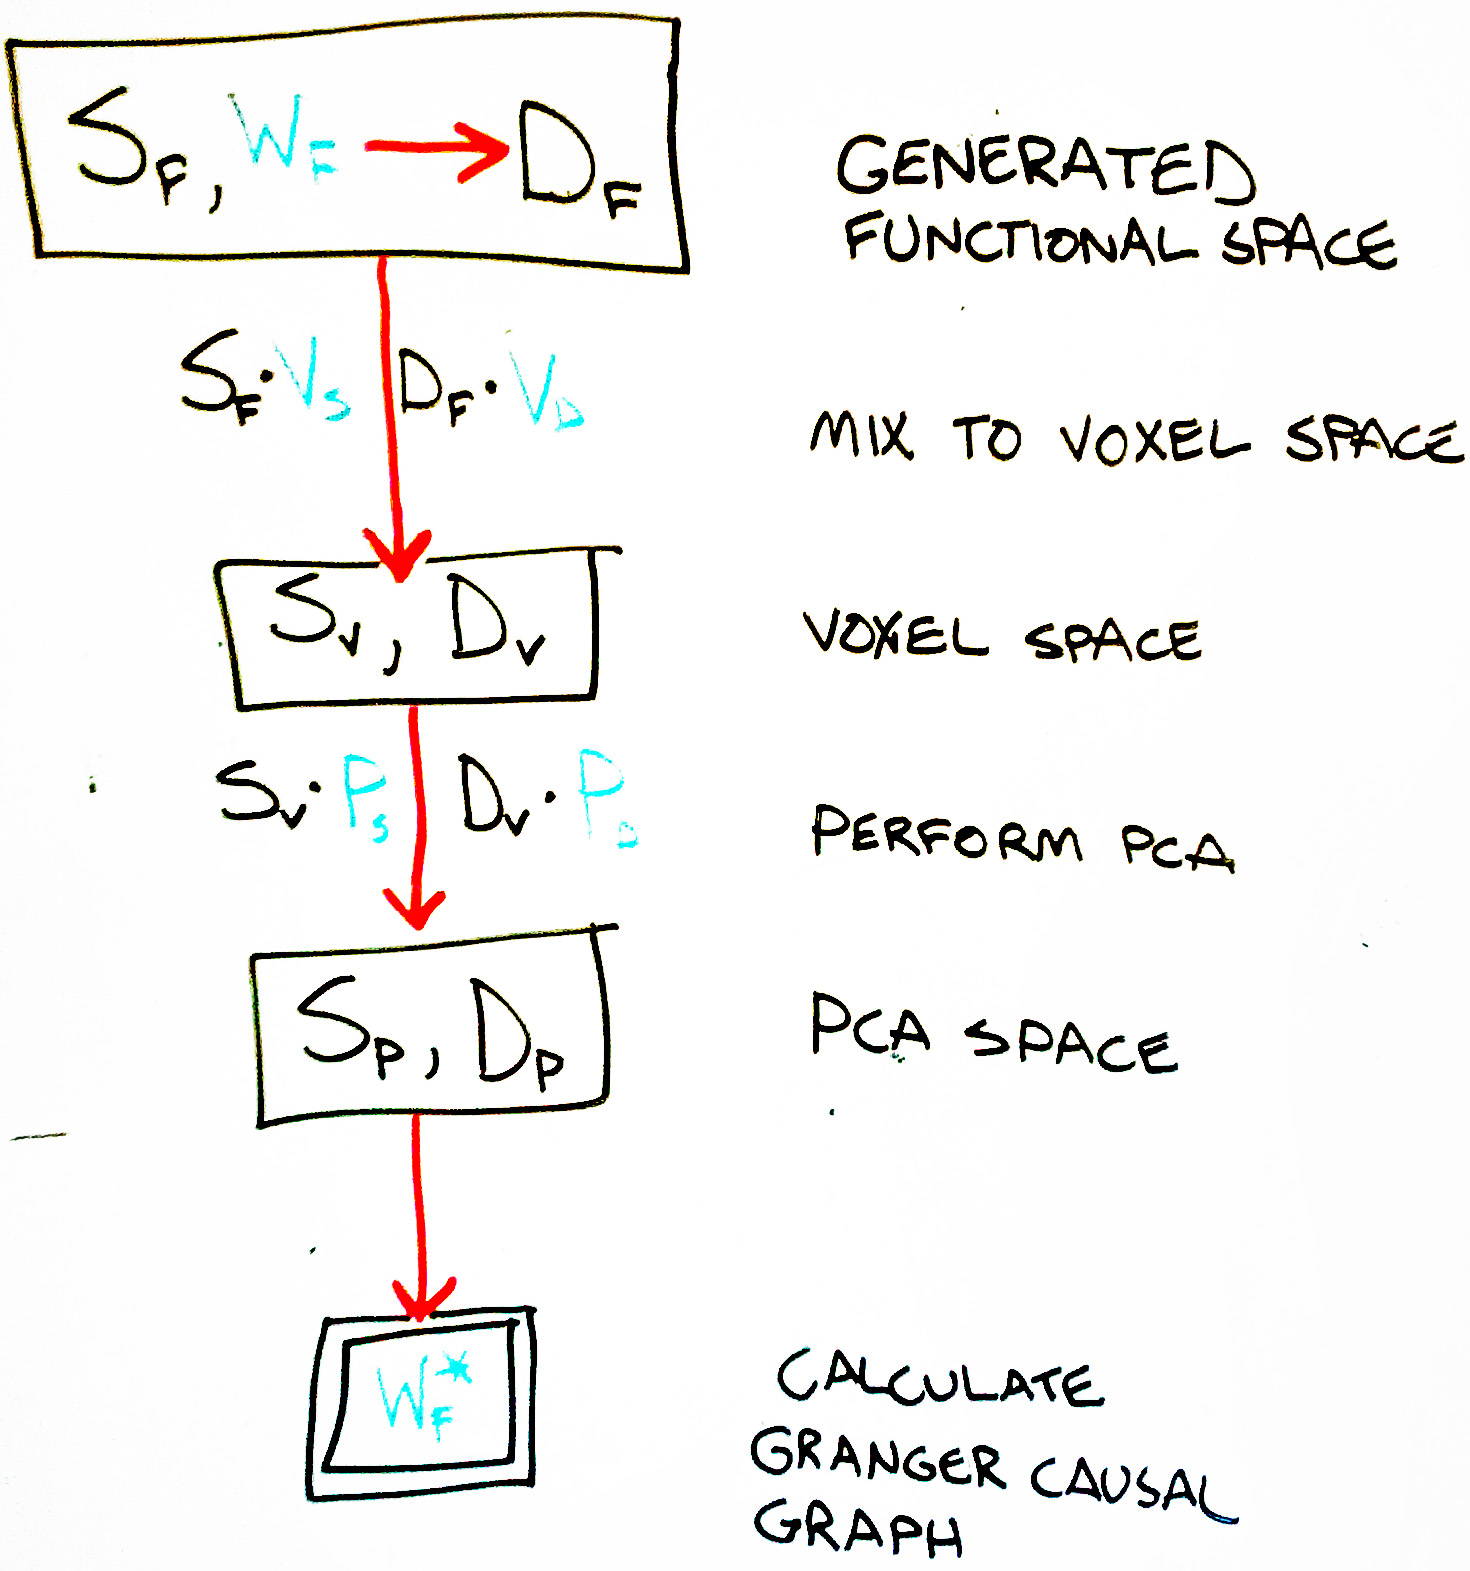 S_F, W_F → D_F
GENERATED
FUNCTIONAL SPACE
S_F · V_S D_F · V_D
MIX TO VOXEL SPACE
S_V, D_V
VOXEL SPACE
S_V · P_S D_V · P_D
PERFORM PCA
S_P, D_P
PCA SPACE
W_F*
CALCULATE
GRANGER CAUSAL
GRAPH